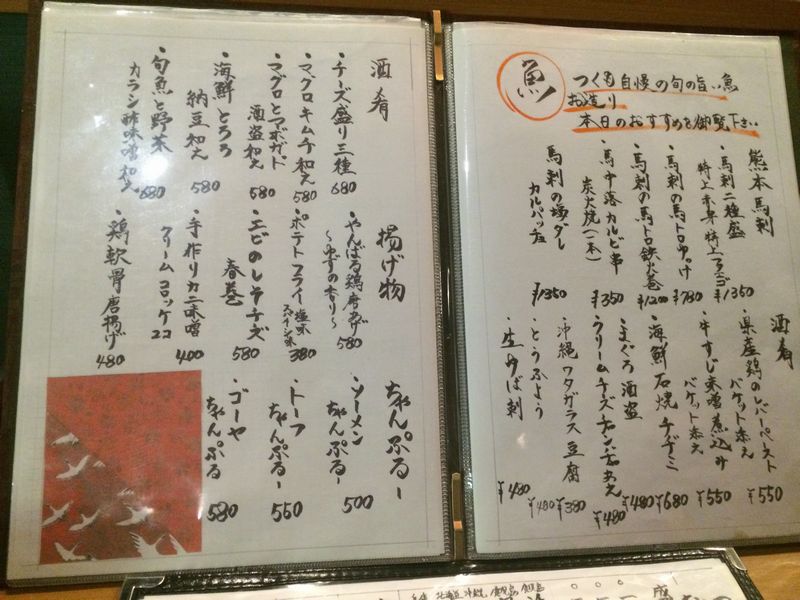 魚
つくも自慢の旬の旨い魚
お造り
本日のおすすめを御覧下さい
熊本馬刺
・馬刺二種盛
特上赤身・特上フタエゴ ¥1350
・馬刺の馬トロゆっけ ¥780
・馬刺の馬トロ鉄火巻 ¥1200
・馬中落カルビ串
炭火焼(一本) ¥350
馬刺の塩ダレ
カルパッチョ ¥1350
酒肴
・県産鶏のレバーペースト
バケット添え ¥550
・牛すじ味噌煮込み
バケット添え ¥550
・海鮮石焼チヂミ ¥680
・まぐろ酒盗 ¥480
・クリームチーズチャンジャあえ ¥480
・沖縄スクガラス豆腐 ¥380
・とうふよう ¥480
・生ゆば刺 ¥480
酒肴
・チーズ盛り三種 680
・マグロキムチ和え 580
・マグロとアボガド
酒盗和え 580
・海鮮とろろ
納豆和え 580
・旬魚と野菜
カラシ酢味噌和え 680
揚げ物
・やんばる鶏唐あげ
〜ゆずの香り〜 580
・ポテトフライ 塩味
スパイシー味 380
・エビのレタチーズ
春巻 580
・手作りカニ味噌
クリームコロッケ2コ 400
・鶏軟骨唐揚げ 480
ちゃんぷるー
・ソーメン
ちゃんぷるー 500
・トーフ
ちゃんぷるー 550
・ゴーヤ
ちゃんぷる 580